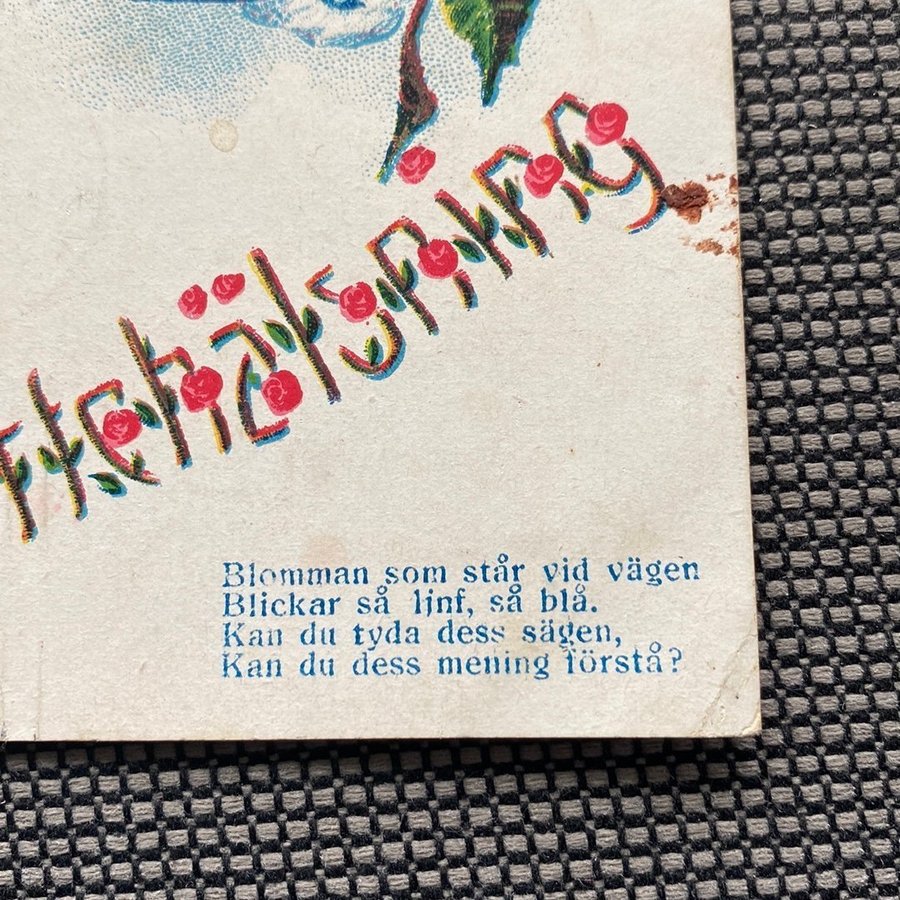 ttehälsning
Blomman som står vid vägen
Blickar så ljnf, så blå.
Kan du tyda dess sägen,
Kan du dess mening förstå?